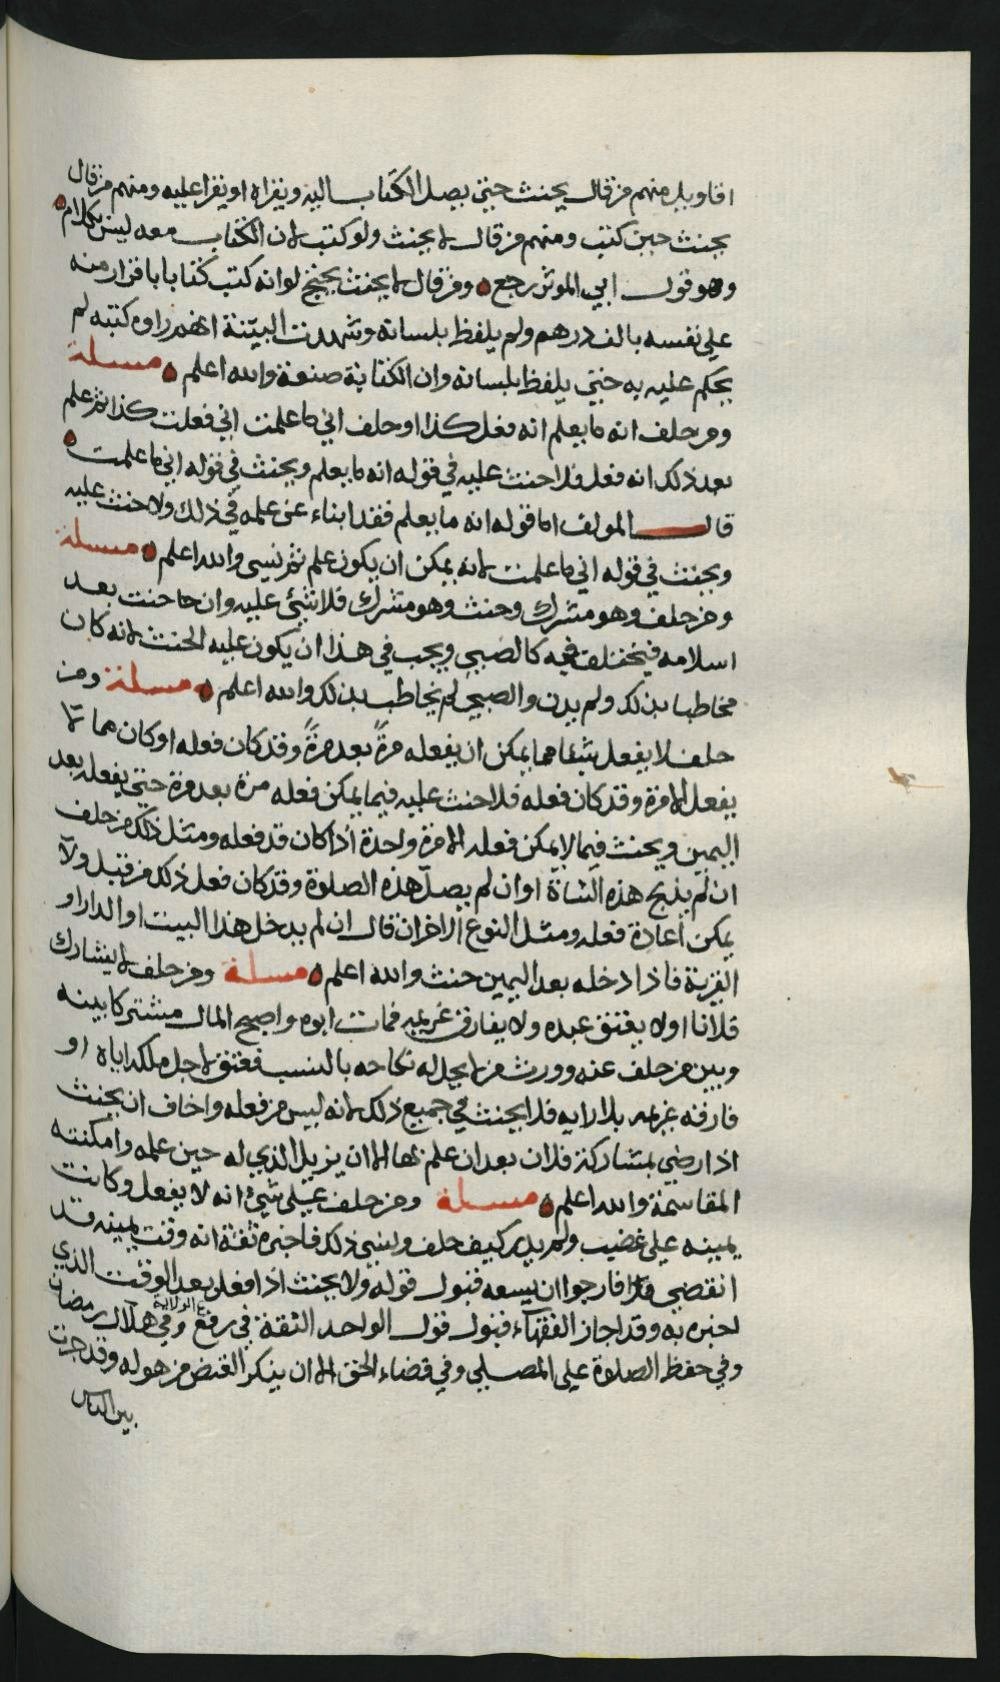 اقاويل منهم من قال يحنث حتى يصل الكتاب اليه ويقراه او يقرا عليه ومنهم من قال
يحنث حين كتب ومنهم من قال لا يحنث ولو كتب لان الكتاب معه ليس بكلام
وهو قول ابي الموثر رجع ومن قال لا يحنث يحتج لو انه كتب كتابا باقرار منه
على نفسه بالف درهم ولم يلفظ بلسانه وشهدت البينة انهم راوه كتبه لم
يحكم عليه به حتى يلفظ بلسانه وان الكتابة صنعة والله اعلم مسلة
ومن حلف انه ما يعلم انه فعل كذا او حلف اني ما علمت اني فعلت كذا ثم علم
بعد ذلك انه فعل فلا حنث عليه في قوله انه ما يعلم ويحنث في قوله اني ما علمت
قال المولف اما قوله انه ما يعلم فقد ابناء عن علمه في ذلك ولا حنث عليه
ويحنث في قوله اني ما علمت لانه يمكن ان يكون علم ثم نسى والله اعلم مسلة
ومن حلف وهو مشرك وحنث وهو مشرك فلا شئ عليه وان حا حنث بعد
اسلامه فيختلف فيه كالصبي ويجب في هذا ان يكون عليه الحنث لانه كان
مخاطبا بذلك ولم يدن والصبي لم يخاطب بذلك والله اعلم مسلة ومن
حلف لا يفعل شيئا مما يمكن ان يفعله مرةً بعد مرةً وقد كان فعله او كان مما لا
يفعل الا مرة وقد كان فعله فلا حنث عليه فيما يمكن فعله مرة بعد مرة حتى يفعله بعد
اليمين ويحنث فيما لا يمكن فعله الا مرة واحدة اذا كان قد فعله ومثل ذلك من حلف
ان لم يذبح هذه الشاة او ان لم يصل هذه الصلوة وقد كان فعل ذلك من قبل ولا
يمكن اعادة فعله ومثل النوع الاخر ان قال ان لم يدخل هذا البيت او الدار او
القرية فاذا دخله بعد اليمين حنث والله اعلم مسلة ومن حلف لا يشارك
فلانا اولا يعتق عبده ولا يفارق غريمه فمات ابوه واصبح المال مشتركا بينه
وبين من حلف عنه وورث من لا يحل له نكاحه بالنسب فعتق لاجل ملكه اياه او
فارقه غريمه بلا رايه فلا يحنث في جميع ذلك لانه ليس من فعله واخاف ان يحنث
اذا رضي بمشاركة فلان بعد ان علم بها الا ان يزيل الذي له حين علمه وامكنته
المقاسمة والله اعلم مسلة ومن حلف على شئ انه لا يفعل وكانت
يمينه على غضب ولم يدر كيف حلف ونسي ذلك فاخبره ثقة انه وقت يمينه قد
انقضى فارجوا ان يسعه قبول قوله ولا يحنث اذا فعل بعد الوقت الذي
اخبره به وقد اجاز الفقهاء قبول قول الواحد الثقة في رفع الولاية وفي هلال رمضان
وفي حفظ الصلوة على المصلي وفي قضاء الحق الا ان ينكر القبض من هو له وقد جرت
بين الناس